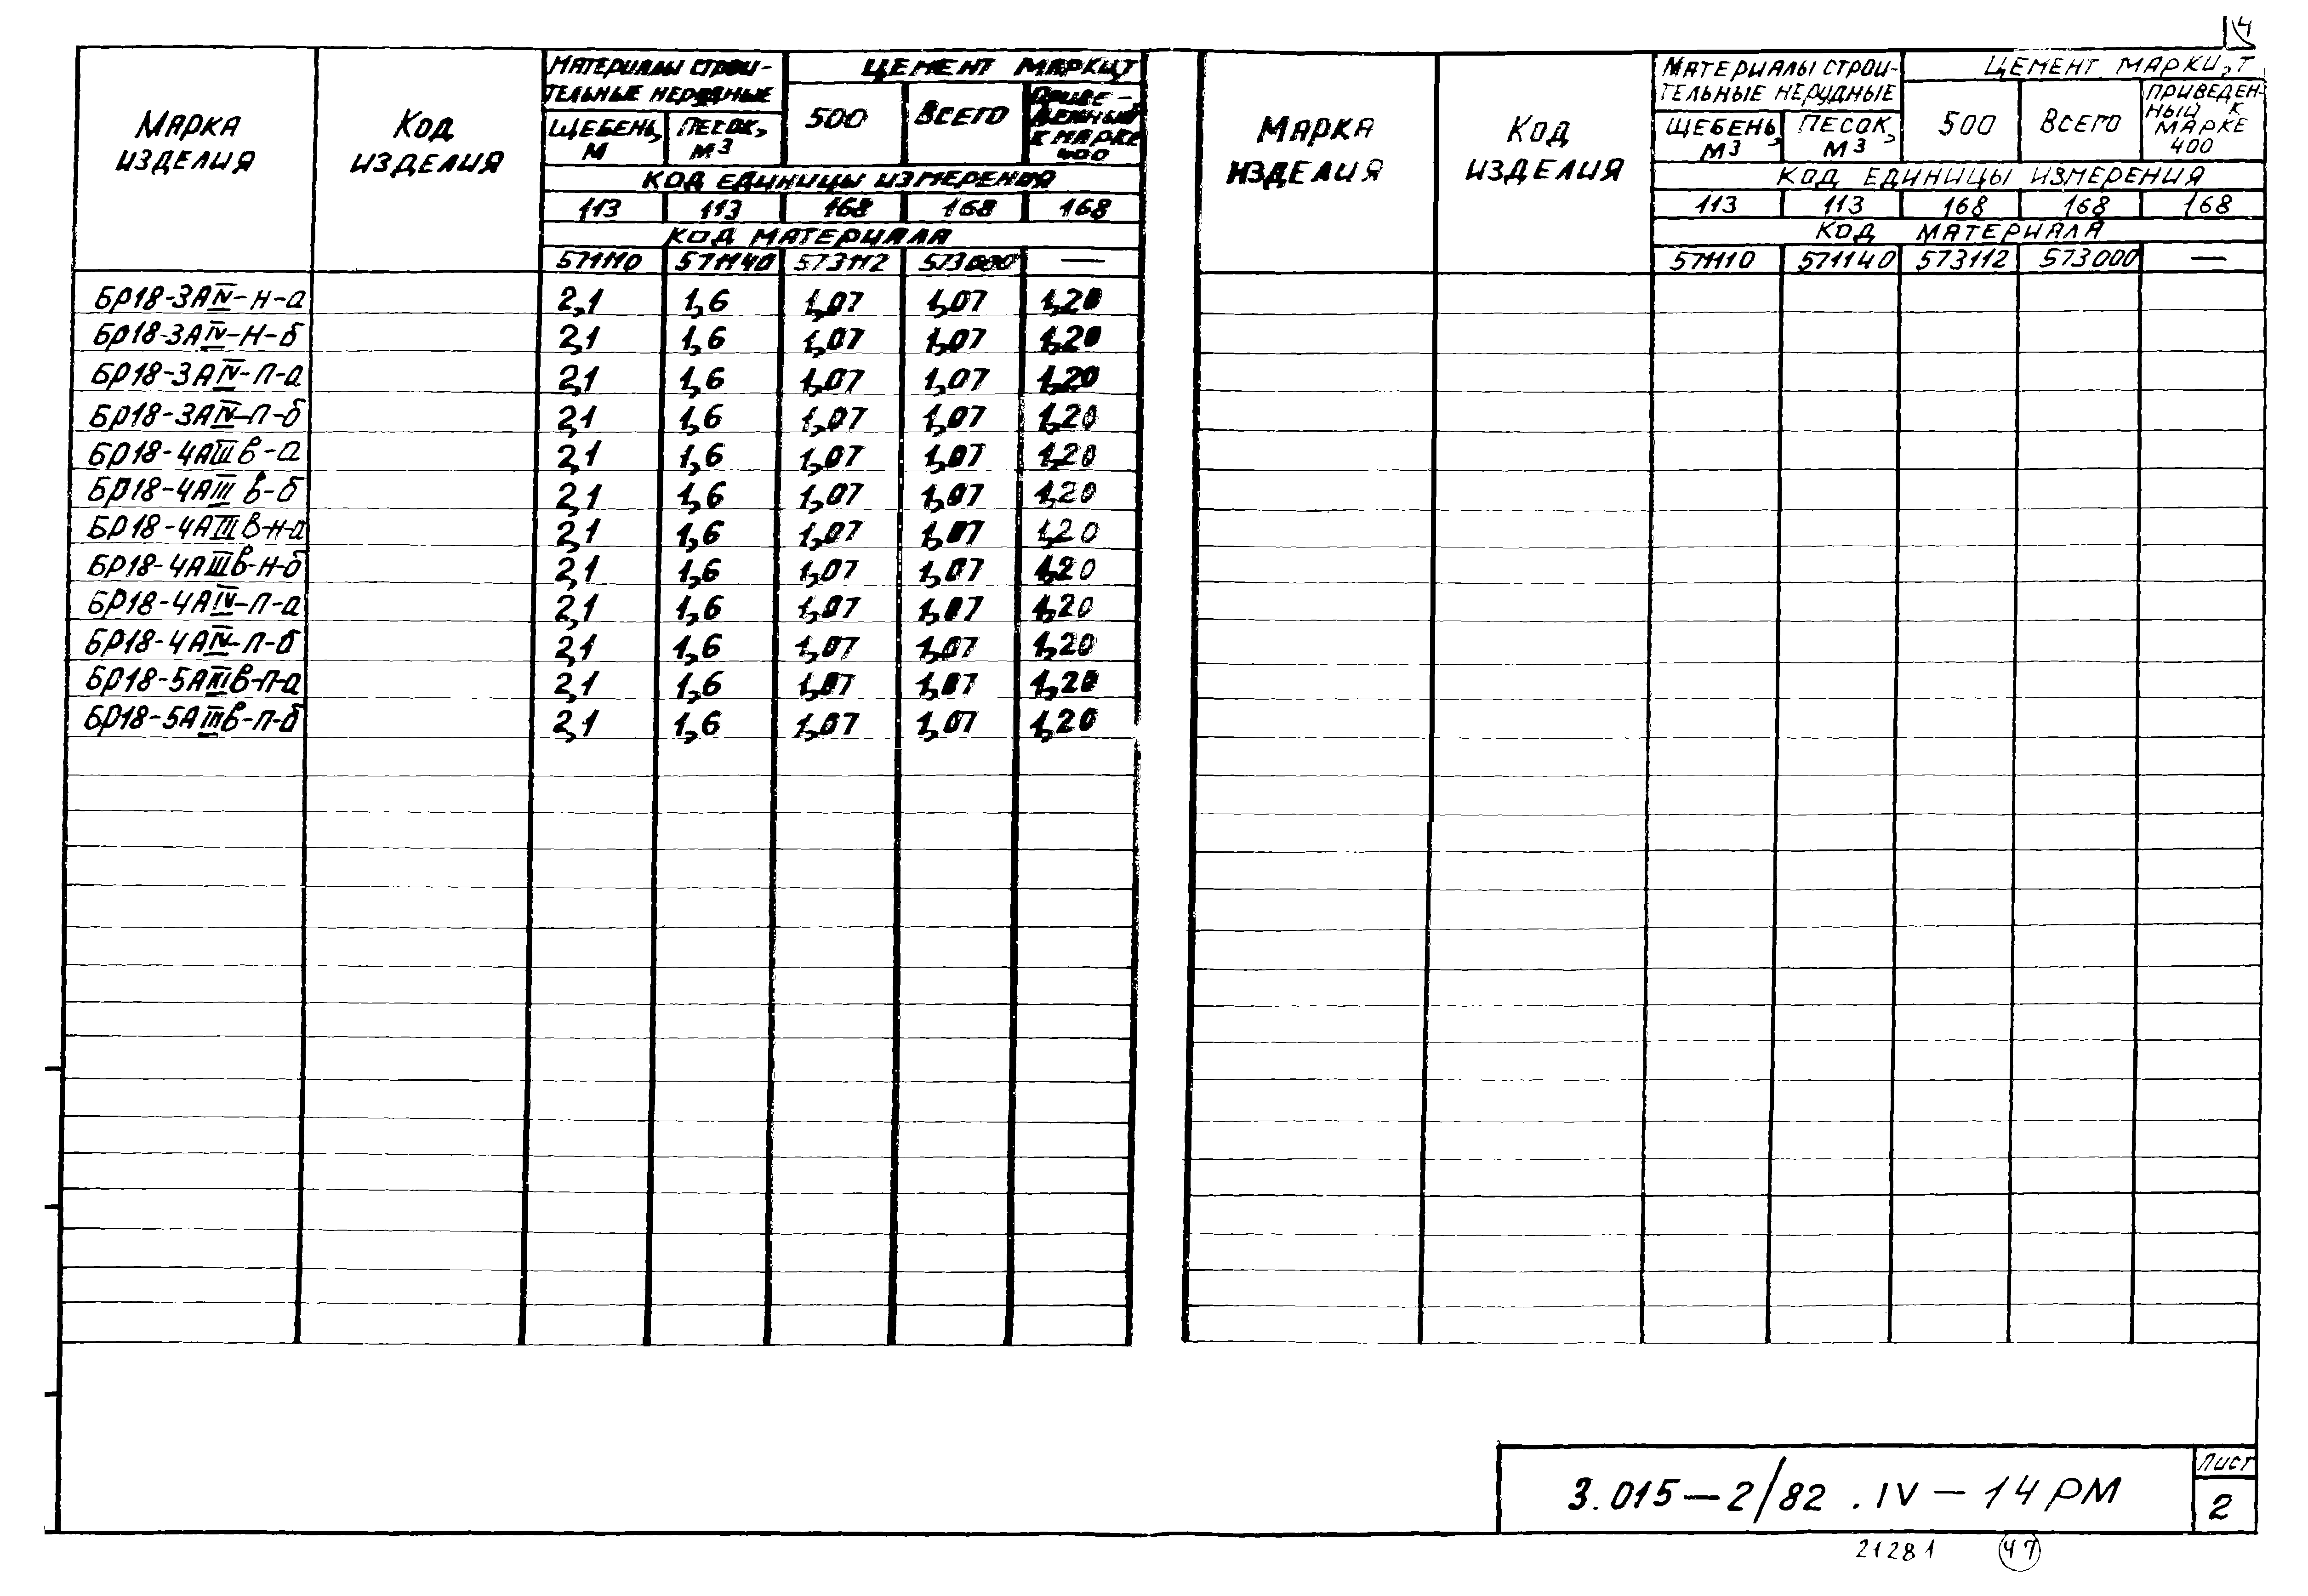 14
Марка изделия | Код изделия | Материалы строи- | Цемент марки,т
тельные нерудные
Щебень, М | Песок, м3 | 500 | Всего | Приве- денный к марке 400
Код единицы измерения
113 | 113 | 168 | 168 | 168
Код материала
571110 | 571140 | 573112 | 573000 | —
БР18-3АIV-н-а | 2,1 | 1,6 | 1,07 | 1,07 | 1,20
БР18-3АIV-н-б | 2,1 | 1,6 | 1,07 | 1,07 | 1,20
БР18-3АIV-п-а | 2,1 | 1,6 | 1,07 | 1,07 | 1,20
БР18-3АIV-п-б | 2,1 | 1,6 | 1,07 | 1,07 | 1,20
БР18-4АIIIв-а | 2,1 | 1,6 | 1,07 | 1,07 | 1,20
БР18-4АIIIв-б | 2,1 | 1,6 | 1,07 | 1,07 | 1,20
БР18-4АIIIв-н-а | 2,1 | 1,6 | 1,07 | 1,07 | 1,20
БР18-4АIIIв-н-б | 2,1 | 1,6 | 1,07 | 1,07 | 1,20
БР18-4АIV-п-а | 2,1 | 1,6 | 1,07 | 1,07 | 1,20
БР18-4АIV-п-б | 2,1 | 1,6 | 1,07 | 1,07 | 1,20
БР18-5АIIIв-п-а | 2,1 | 1,6 | 1,07 | 1,07 | 1,20
БР18-5АIIIв-п-б | 2,1 | 1,6 | 1,07 | 1,07 | 1,20
Марка изделия | Код изделия | Материалы строи- | Цемент марки,т
тельные нерудные
Щебень, м3 | Песок, м3 | 500 | Всего | Приведен- ный к марке 400
Код единицы измерения
113 | 113 | 168 | 168 | 168
Код материала
571110 | 571140 | 573112 | 573000 | —
3.015-2/82.IV-14РМ
Лист
2
21281
47